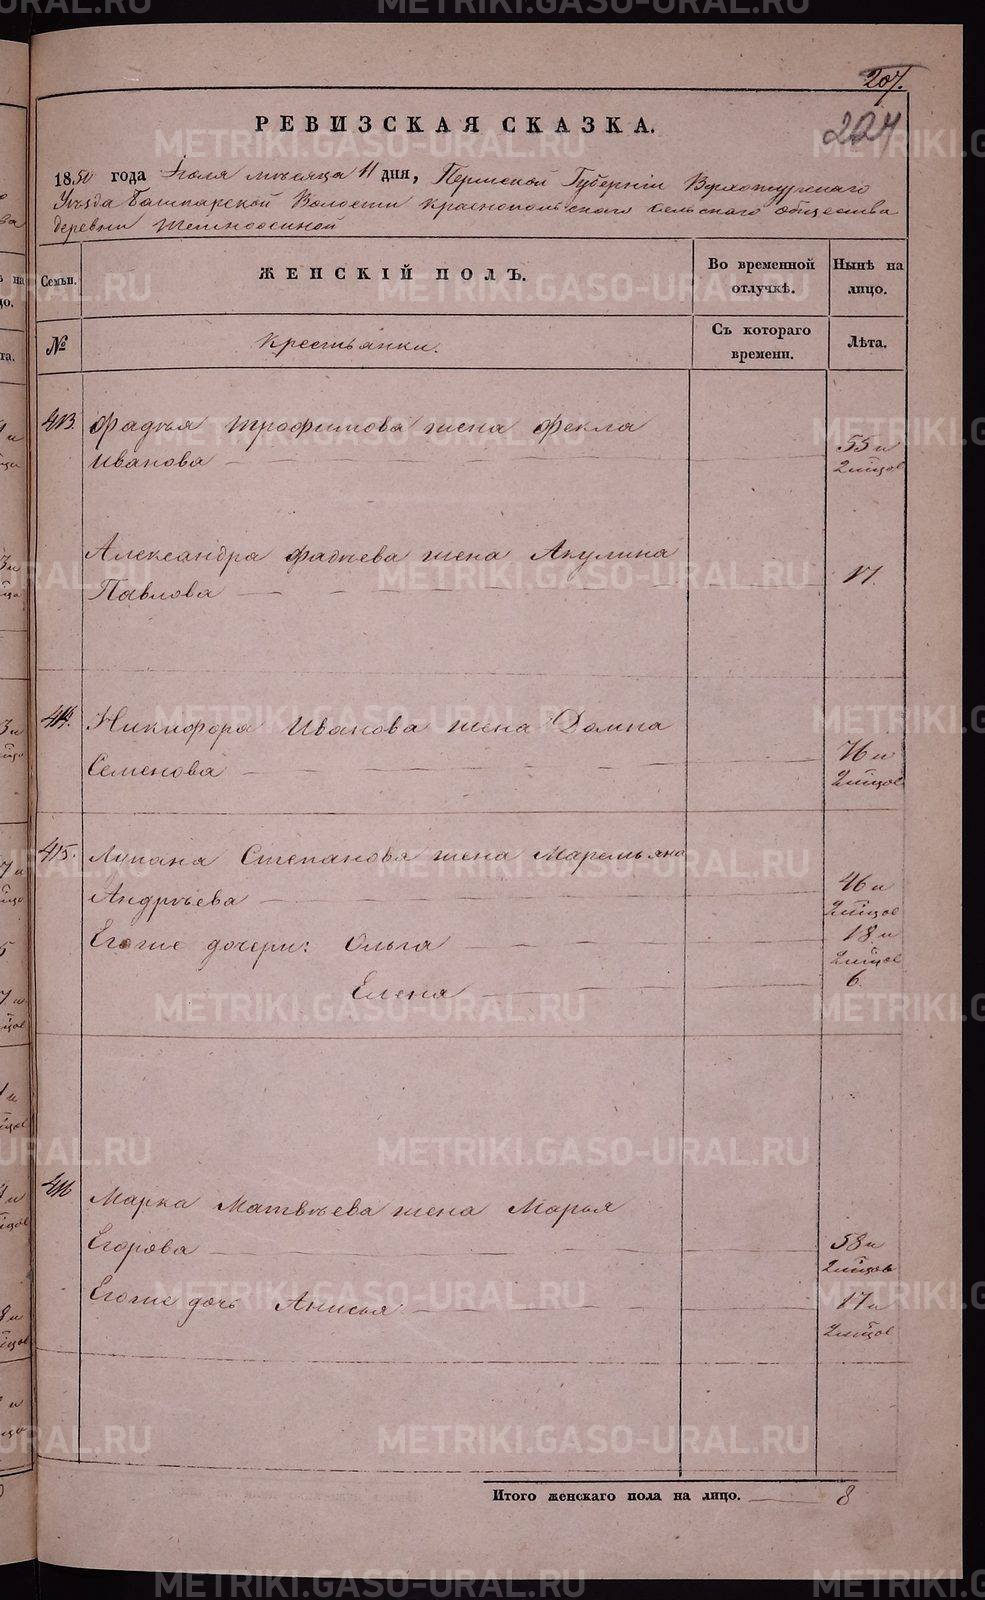 207.
224
РЕВИЗСКАЯ СКАЗКА.
1850 года Іюля мѣсяца 11 дня, Пермской Губерніи Верхотурскаго
Уѣзда Башкарской Волости Краснопольскаго сельскаго общества
деревни
Семьи.
ЖЕНСКІЙ ПОЛЪ.
Во временной отлучкѣ.
Нынѣ на лицо.
№
Крестьянки.
Съ котораго времени.
Лѣта.
413. Фадѣя Трофимова жена Фекла
Иванова 55 и
2 мѣсцов
Александра Фадѣева жена Акулина
Павлова 17.
414. Никифора Иванова жена Домна
Семенова 76 и
2 мѣсцов
415. Лупана Степанова жена Маремьяна
Андрѣева 46 и
2 мѣсцов
Егоже дочери: Ольга 18 и
2 мѣсцов
Елена 6
416 Марка Матвѣева жена Марья
Егорова 58 и
2 мѣсцов
Егоже дочь Анисья 17 и
2 мѣсцов
Итого женскаго пола на лицо. 8
METRIKI.GASO-URAL.RU